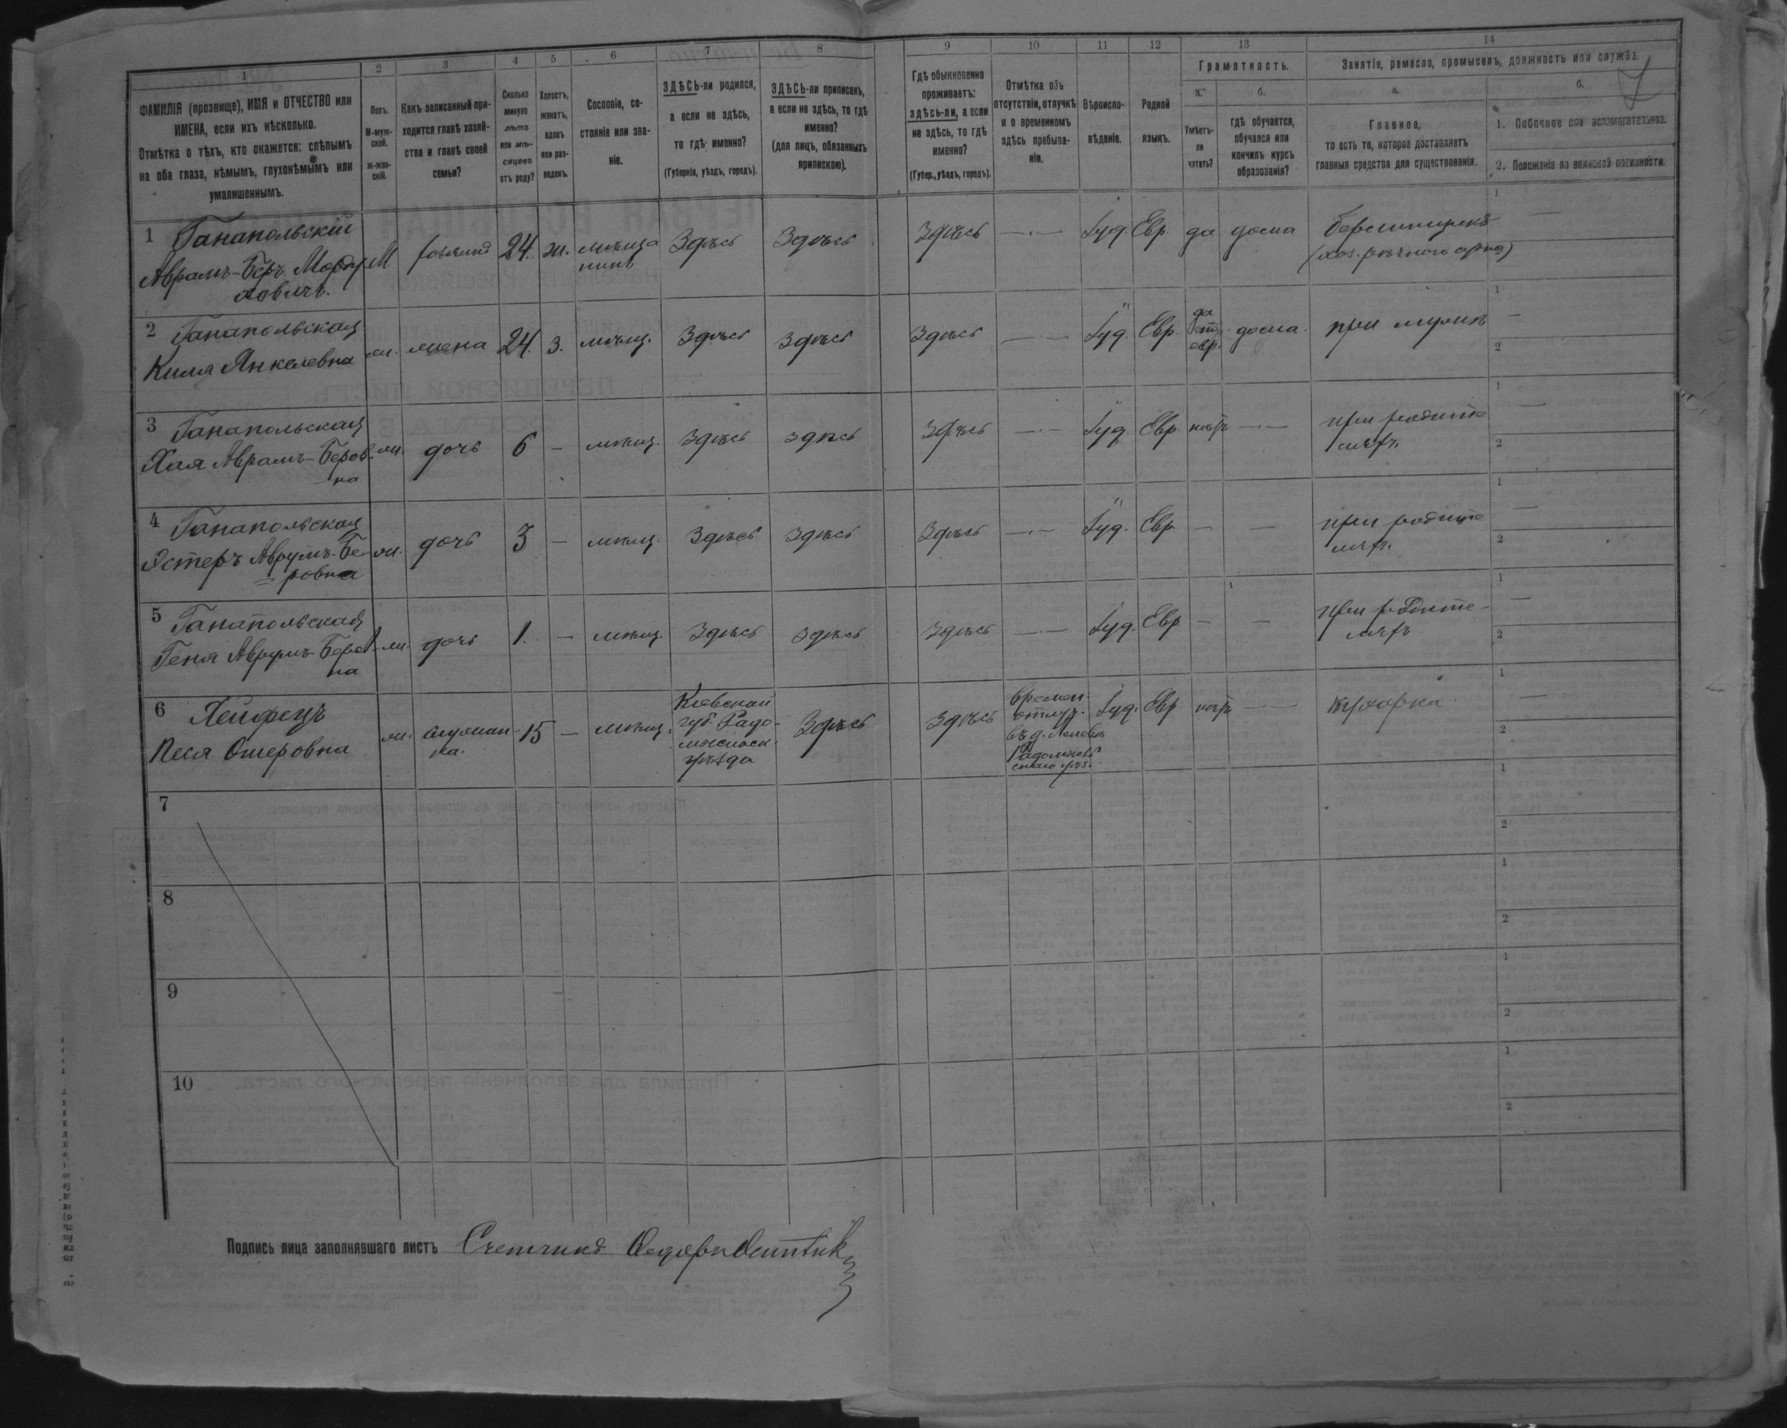 1 2 3 4 5 6 7 8 9 10 11 12 13 14
ФАМИЛІЯ (прозвище), ИМЯ и ОТЧЕСТВО или
ИМЕНА, если ихъ нѣсколько.
Отмѣтка о тѣхъ, кто окажется: слѣпымъ
на оба глаза, нѣмымъ, глухонѣмымъ или
умалишеннымъ.
Полъ.
М-муж-
ской.
ж-жен-
скій.
Какъ записанный при-
ходится главѣ хозяй-
ства и главѣ своей
семьи?
Сколько
минуло
лѣтъ
или мѣ-
сяцевъ
отъ роду?
Холостъ,
женатъ,
вдовъ
или раз-
веденъ.
Сословіе, со-
стояніе или зва-
ніе.
ЗДѢСЬ-ли родился,
а если не здѣсь,
то гдѣ именно?
(Губернія, уѣздъ, городъ).
ЗДѢСЬ-ли приписанъ,
а если не здѣсь, то гдѣ
именно?
(для лицъ, обязанныхъ
припискою).
Гдѣ обыкновенно
проживаетъ:
здѣсь-ли, а если
не здѣсь, то гдѣ
именно?
(Губер., уѣздъ, городъ).
Отмѣтка объ
отсутствіи, отлучкѣ
и о временномъ
здѣсь пребыва-
ніи.
Вѣроиспо-
вѣданіе.
Родной
языкъ.
Грамотность.
а.
Умѣетъ-
ли
читать?
б.
гдѣ обучается,
обучался или
кончилъ курсъ
образованія?
Занятіе, ремесло, промыселъ, должность или служба.
а.
Главное,
то есть то, которое доставляетъ
главныя средства для существованія.
б.
1. Побочное или вспомогательное.
2. Положеніе по воинской повинности.
7
1 Ганапольскій
Аврамъ-Беръ
М 24 ж. мѣща
нинъ Здѣсь Здѣсь Здѣсь — Іуд. Евр. да дома
2 Ганапольская
Янкелевна
ж. жена 24 З. мѣщ. Здѣсь Здѣсь Здѣсь — Іуд. Евр. да дома при мужѣ —
евр.
3 Ганапольская
Хая Аврамъ-Беров-
на
ж. дочь 6 — мѣщ. Здѣсь здѣсь Здѣсь — Іуд. Евр. нѣтъ — при родите
ляхъ —
4 Ганапольская
Эстеръ Аврумъ-Бе-
ровна
ж. дочь 3 — мѣщ. Здѣсь Здѣсь Здѣсь — Іуд. Евр — — при родите
ляхъ. —
5 Ганапольская
Геня Аврумъ-Беров
на
ж. дочь 1. — мѣщ. Здѣсь Здѣсь Здѣсь — Іуд. Евр — — при родите-
ляхъ —
6 Хейфецъ
Песя Ошеровна
ж. служан-
ка. 15 — мѣщ. Кіевской
губ. Радо-
мысльск.
уѣзда Здѣсь Здѣсь времен.
отлуч.
Іуд. Евр нѣтъ — кухарка —
7
8
9
10
Подпись лица заполнявшаго листъ Счетчикъ